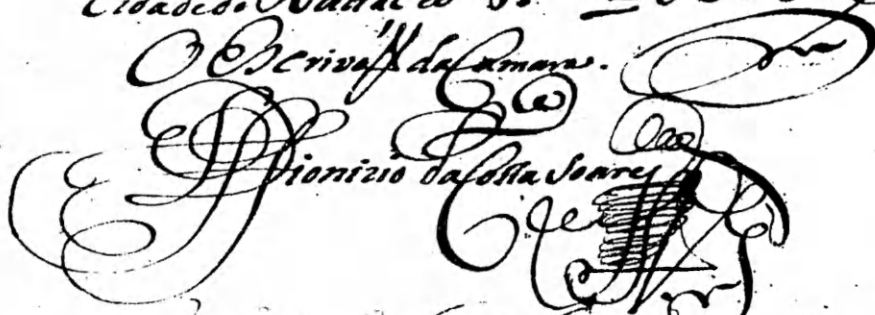 Cidade do Natal
O Escrivaõ da Camara.
Dionizio da Costa Soares